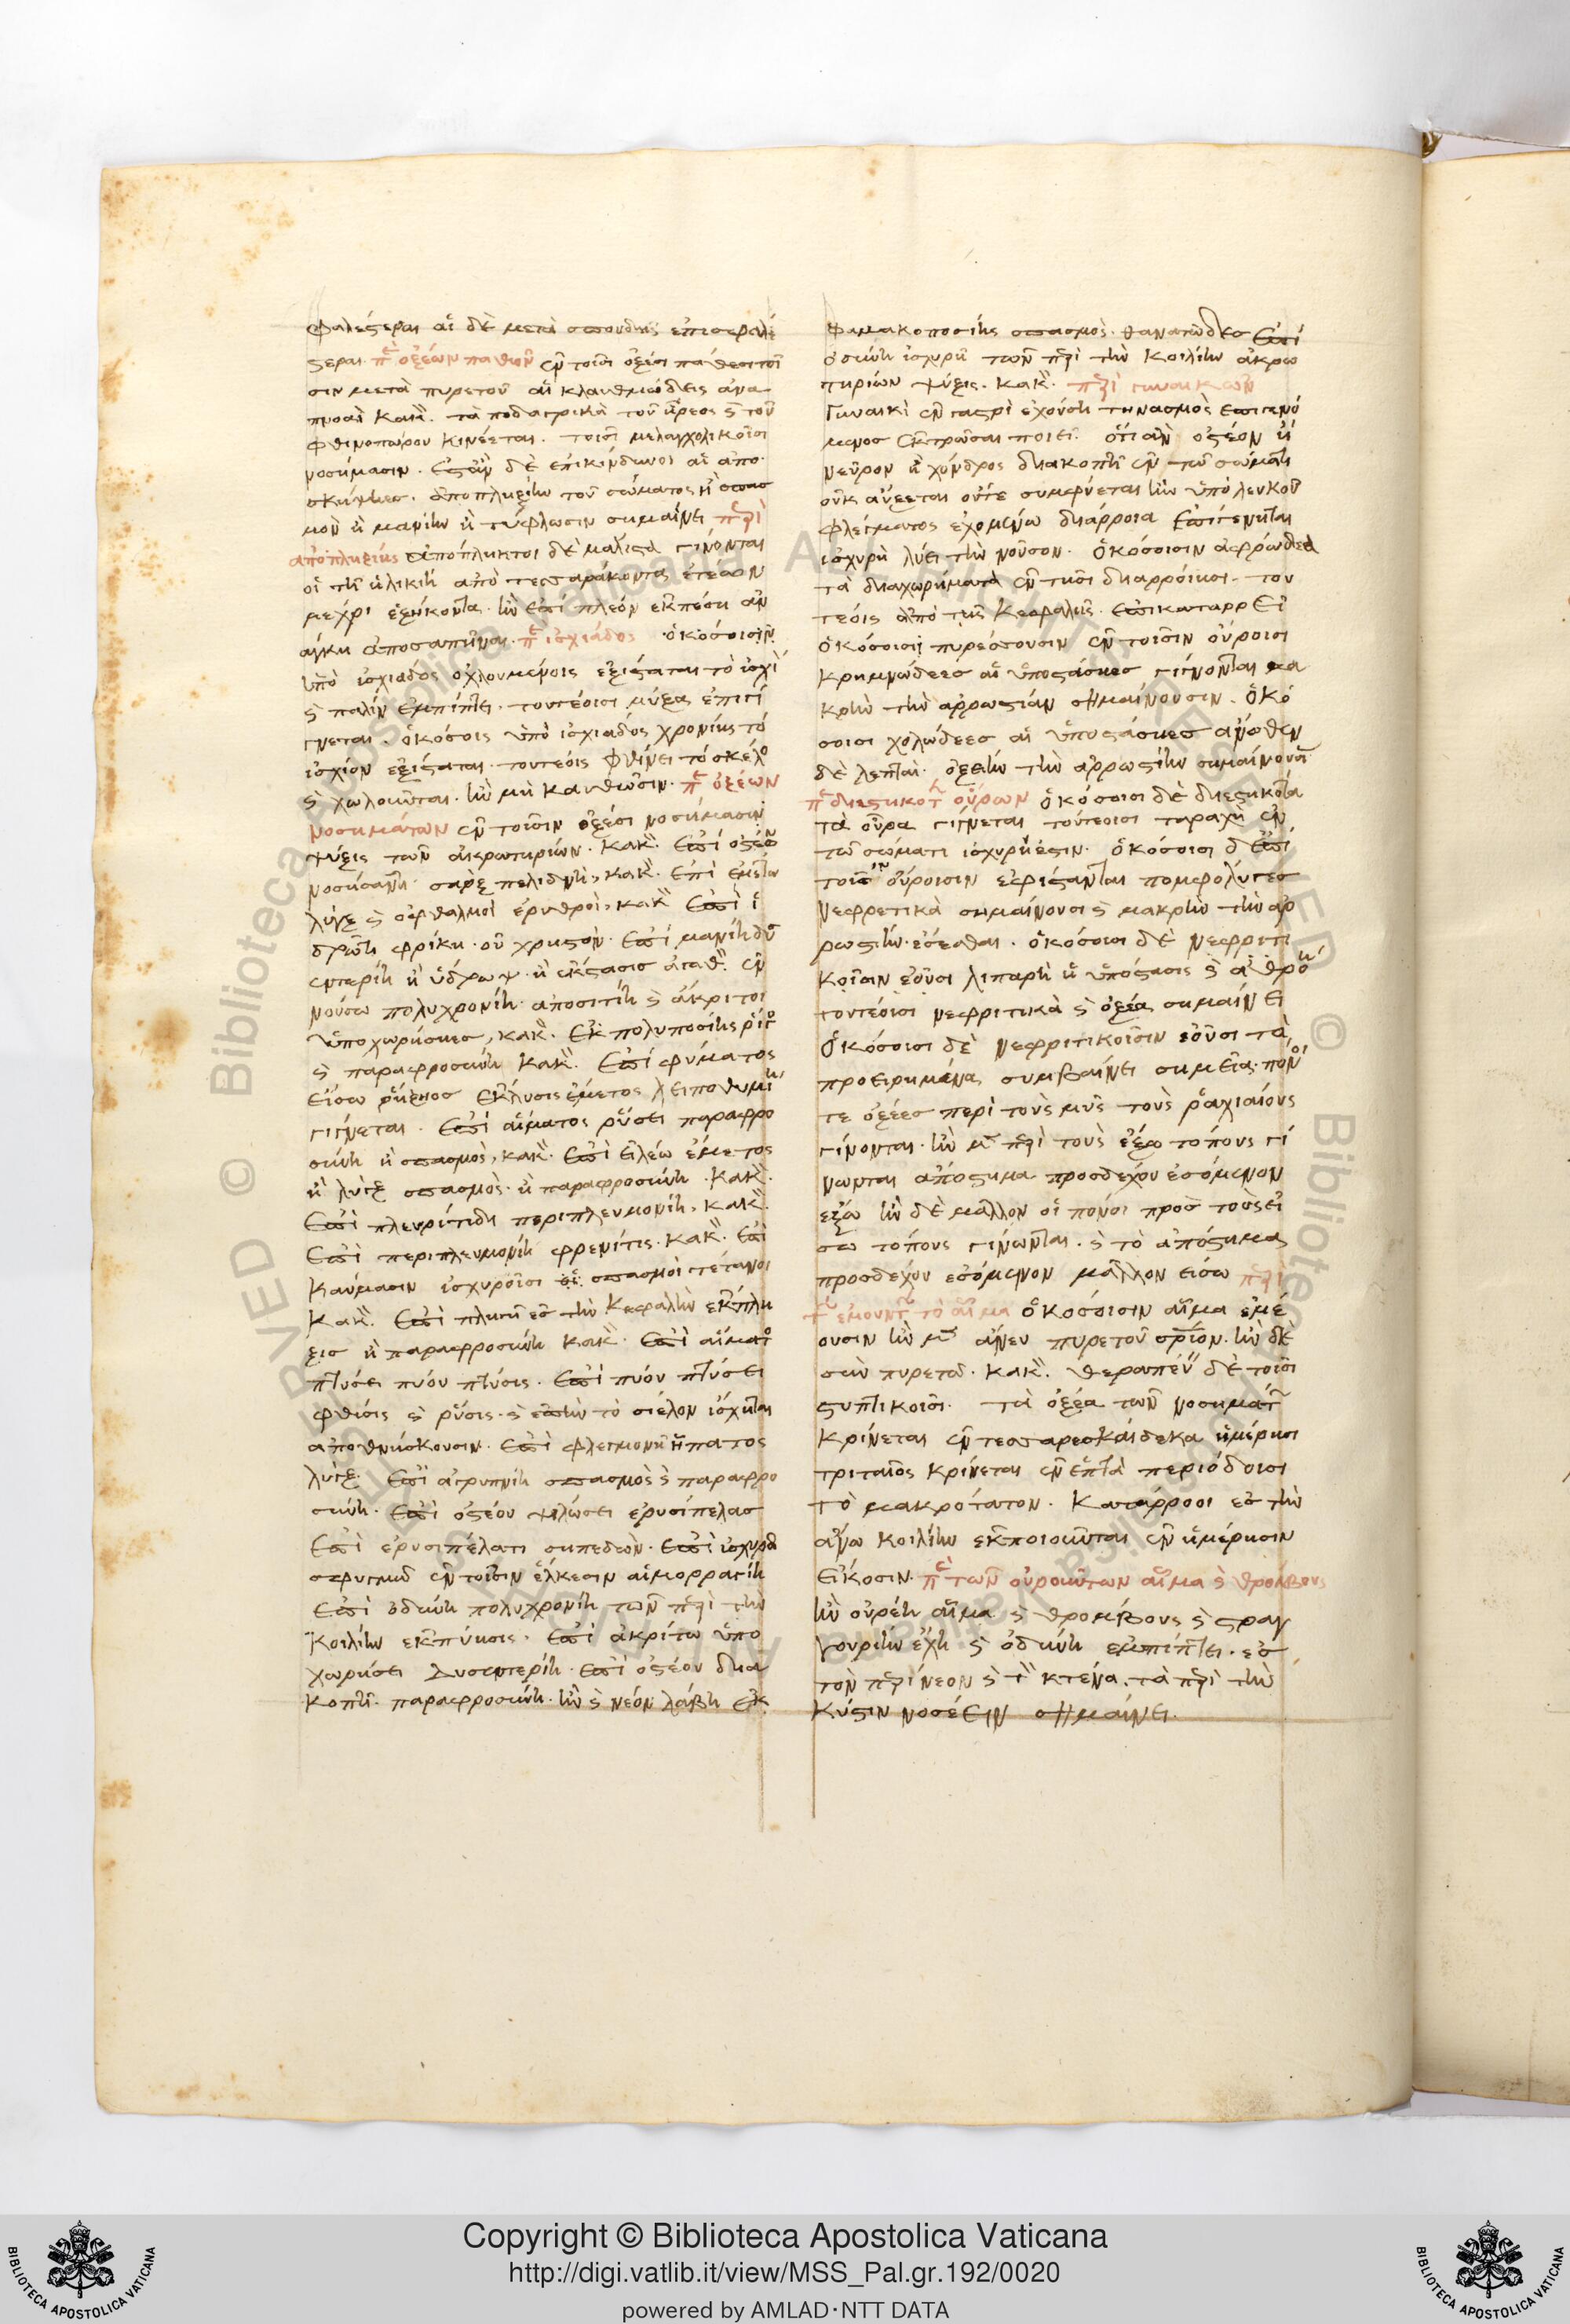 φαλέστεραι αἱ δὲ μετὰ σπουδῆς ἐπισφαλέ
στεραι. πὲ ὀξέων παθῶν ἐν τοῖσι ὀξέσι πάθεσι τοῖ
σιν μετὰ πυρετοῦ αἱ κλαυθμώδεις ἀνα
πνοαὶ κακ. τὰ ποδαγρικὰ τοῦ ἦρεος ϗ τοῦ
φθινοπώρου κινέεται. τοῖσι μελαγχολικοῖσι
νοσήμασιν. δὲ ἐπικίνδυνοι αἱ ἀπο
σκήψιες. ἀποπληξίην τοῦ σώματος ἢ σπασ
μὸν ἢ μανίην ἢ τύφλωσιν σημαίνει περὶ
ἀποπληξίης ἀπόπληκτοι δὲ μάλιστα γίνονται
οἱ τῆ ἡλικίη ἀπὸ τεσσαράκοντα ἐτέων
μέχρι ἑξήκοντα. ἢν ἐπίπλεον ἐκπέση ἀν
άγκη ἀποσαπῆναι. πὲ ἰσχιάδος ὁκόσοισιν
ὑπὸ ἰσχιάδος ὀχλουμένοις ἐξίσταται τὸ ἰσχί
ϗ πάλιν ἐμπίπτει. τουτέοισι μύξα ἐπιγί
γνεται. ὁκόσοις ὑπὸ ἰσχιάδος χρονίης τὸ
ἰσχίον ἐξίσταται. τουτέοις φθίνει τὸ σκέλο
ϗ χωλοῦνται. ἢν μὴ καυθῶσιν. πὲ ὀξέων
νοσημάτων ἐν τοῖσιν ὀξέσι νοσήμασιν
ψύξις τῶν ἀκρωτηρίων. κακ. ἐπὶ ὀστέω
νοσήσαντι σὰρξ πελιδνή, κακ. ἐπὶ ἐμέτω
λύγξ ϗ ὀφθαλμοὶ ἐρυθροὶ, κακ ἐπὶ ἱ
δρῶτι φρίκη. οὐ χρηστόν. ἐπὶ μανίη δυ
σεντερίη ἢ ὕδρωψ. ἢ ἔκστασις ἀγαθ. ἐν
νούσω πολυχρονίη. ἀποσιτίη ϗ ἄκρητοι
ὑποχωρήσιες, κακ. ἐκ πολυποσίης ῥίγ
ϗ παραφροσύνη κακ. ἐπὶ φύματος
εἴσω ῥήξιος ἔκλυσις ἔμετος λειποθυμίη
γίγνεται. ἐπὶ αἵματος ῥύσει παραφρο
σύνη ἢ σπασμὸς, κακ. ἐπὶ εἰλέω ἔμετος
ἢ λὺγξ σπασμὸς. ἢ παραφροσύνη. κακ.
ἐπὶ πλευρίτιδι περιπλευμονίη. κακ.
ἐπὶ περιπλευμονίη φρενίτις. κακ. ἐπὶ
καύμασιν ἰσχυροῖσι σπασμοὶ τέτανοι
κακ. ἐπὶ πληγῆ ἐς τὴν κεφαλὴν ἔκπλη
ξις ἢ παραφροσύνη κακ. ἐπὶ αἵματ
πτύσει πύον πτύσις. ἐπὶ πύον πτύσει
φθίσις ϗ ῥύσις. ϗ ἐπὴν τὸ σίελον ἴσχηται
ἀποθνήσκουσιν. ἐπὶ φλεγμονῆ ἥπατος
λύγξ. ἐπὶ ἀγρυπνίη σπασμὸς ϗ παραφρο
σύνη. ἐπὶ ὀστέου ψιλώσει ἐρυσίπελας
ἐπὶ ἐρυσιπέλατι σηπεδών. ἐπὶ ἰσχυρῶ
σφυγμῶ ἐν τοῖσιν ἕλκεσιν αἱμορραγίη
ἐπὶ ὀδύνη πολυχρονίη τῶν περὶ τὴν
κοιλίην ἐκπύησις. ἐπὶ ἀκρίτω ὑπο
χωρήσει δυσεντερίη. ἐπὶ ὀστέου δια
κοπῆ. παραφροσύνη. ἢν ϗ νέον λάβη ἐκ
φαμακοποσίης σπασμὸς. θανατῶδες ἐπὶ
ὀδύνη ἰσχυρῆ τῶν περὶ τὴν κοιλίην ἀκρω
τηρίων ψύξις. κακ. περὶ γυναικῶν
Γυναικὶ ἐν γαστρὶ ἐχούση τηνασμὸς ἐπιγενό
μενος ἐκτρῶσαι ποιεῖ. ὅτι ἂν ὀστέον ἢ
νεῦρον ἢ χόνδρος διακοπῆ ἐν τῶ σώματι
οὐκ αὔξεται οὔτε συμφύεται ἢν ὑπὸ λευκοῦ
φλέγματος ἐχομένω διάρροια ἐπιγένηται
ἰσχυρὴ λύει τὴν νοῦσον. ὁκόσοισιν ἀφρώδεα
τὰ διαχωρήματα ἐν τῆσι διαρροίησι. του
τέοις ἀπὸ τῆς κεφαλῆς. ἐπικαταρρεῖ
ὁκόσοισι πυρέσσουσιν ἐν τοῖσιν οὔροισι
κρημνώδεες αἱ ὑποστάσιες γίγνονται μα
κρὴν τὴν ἀρρωστίαν σημαίνουσιν. ὁκό
σοισι χολώδεες αἱ ὑποστάσιες ἄνωθεν
δὲ λεπταὶ. ὀξείην τὴν ἀρρωστίην σημαίνουσ
πὲ διεστηκότ οὔρων ὁκόσοισι δὲ διεστηκότα
τὰ οὖρα γίγνεται τούτεοισι ταραχὴ ἐν
τῶ σώματι ἰσχυρή ἐστιν. ὁκόσοισι δ ἐπὶ
τοῖσιν οὔροισιν ἐφίστανται πομφόλυγες
νεφρετικὰ σημαίνουσι ϗ μακρὴν τὴν ἀρ
ρωστίην. ἔσεσθαι. ὁκόσοισι δὲ νεφριτι
κοῖσιν ἐοῦσι λιπαρὴ ἡ ὑπόστασις ϗ ἀθρόη
τουτέοισι νεφριτικὰ ϗ ὀξέα σημαίνει
Ὁκόσοισι δὲ νεφριτικοῖσιν ἐοῦσι τὰ
προειρημένα συμβαίνει σημεῖα. πόνοι
τε ὀξέες περὶ τοὺς μῦς τοὺς ῥαχιαίους
γίνονται. ἢν μ περὶ τοὺς ἔξω τόπους γί
νωνται ἀπόστημα προσδέχου ἐσόμενον
ἔξω ἢν δὲ μᾶλλον οἱ πόνοι πρὸς τοὺς εἴ
σω τόπους γίνωνται. ϗ τὸ ἀπόστημα
προσδέχου ἐσόμενον μᾶλλον εἴσω περὶ
τ ἐμούντ τὸ αἷμα ὁκοσόισιν αἷμα ἐμέ
ουσιν ἢν μ ἄνευ πυρετοῦ σριον. ἢν δὲ
σὺν πυρετῶ. κακ. θεραπεύ δὲ τοῖσι
στυπτικοῖσι. τὰ ὀξέα τῶν νοσημάτ
κρίνεται ἐν τεσσαρεσκαίδεκα ἡμέρησι
τριταῖος κρίνεται ἐν ἑπτὰ περιόδοισι
τὸ μακρότατον. κατάρροοι ἐς τὴν
ἄνω κοιλίην ἐκποιοῦνται ἐν ἡμέρησιν
εἴκοσιν. πὲ τῶν οὐρούντων αἷμα ϗ θρόμβους
ἢν οὐρέη αἷμα ϗ θρόμβους ϗ στραγ
γουρίην ἔχη ϗ ὀδύνη ἐμπίπτει. ἐς
τὸν περίνεον ϗ τ κτένα. τὰ περὶ τὴν
κύστιν νοσέειν σημαίνει.
Copyright © Biblioteca Apostolica Vaticana
http://digi.vatlib.it/view/MSS_Pal.gr.192/0020
powered by AMLAD·NTT DATA